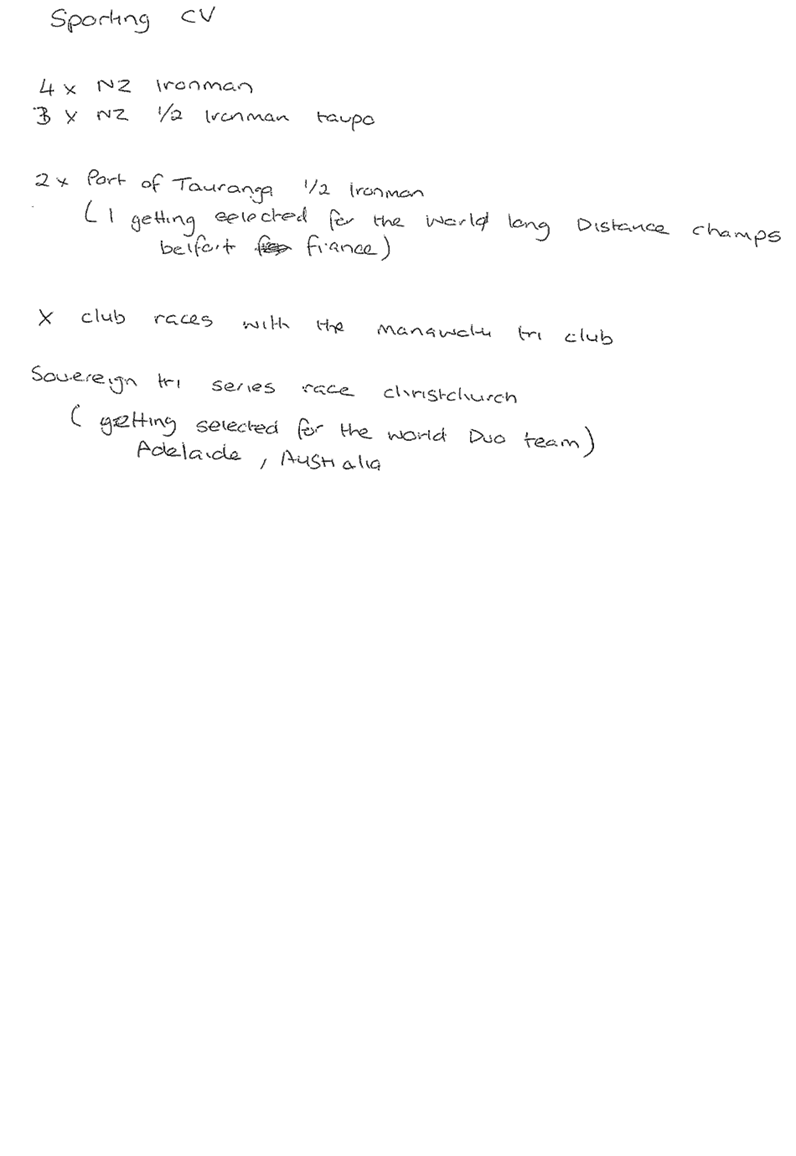 Sporting CV
4 x NZ Ironman
3 x NZ 1/2 Ironman taupo
2 x Port of Tauranga 1/2 Ironman
( 1 getting selected for the world long Distance champs
belfort france )
X club races with the manawatu tri club
Sovereign tri series race christchurch
( getting selected for the world Duo team )
Adelaide , Australia